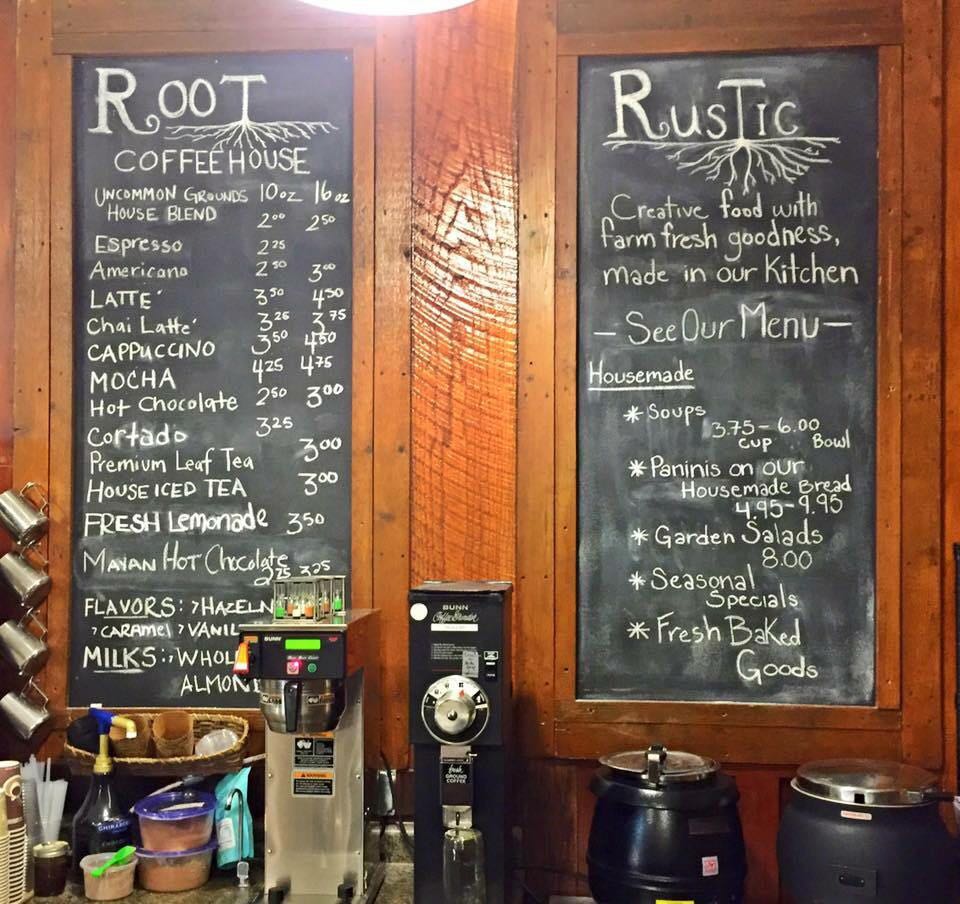 ROOT
COFFEE HOUSE
UNCOMMON GROUNDS 10oz 16oz
HOUSE BLEND 2.00 2.50
Espresso 2.25
Americano 2.50 3.00
LATTE´ 3.50 4.50
Chai Latte´ 3.25 3.75
CAPPUCCINO 3.50 4.50
MOCHA 4.25 4.75
Hot Chocolate 2.50 3.00
Cortado 3.25
Premium Leaf Tea 3.00
HOUSE ICED TEA 3.00
FRESH Lemonade 3.50
MAYAN HOT Chocolate
2.75 3.25
FLAVORS: HAZELN
CARAMEL VANIL
MILKS: WHOL
ALMON
RUSTIC
Creative food with
farm fresh goodness,
made in our Kitchen
— See Our Menu —
Housemade
* Soups
3.75 - 6.00
cup Bowl
* Paninis on our
Housemade Bread
4.95 - 9.95
* Garden Salads
8.00
* Seasonal
Specials
* Fresh Baked
Goods
BUNN
BUNN
Coffee Grinder
fresh
GROUND
COFFEE
WARNING
GHIRARDELLI